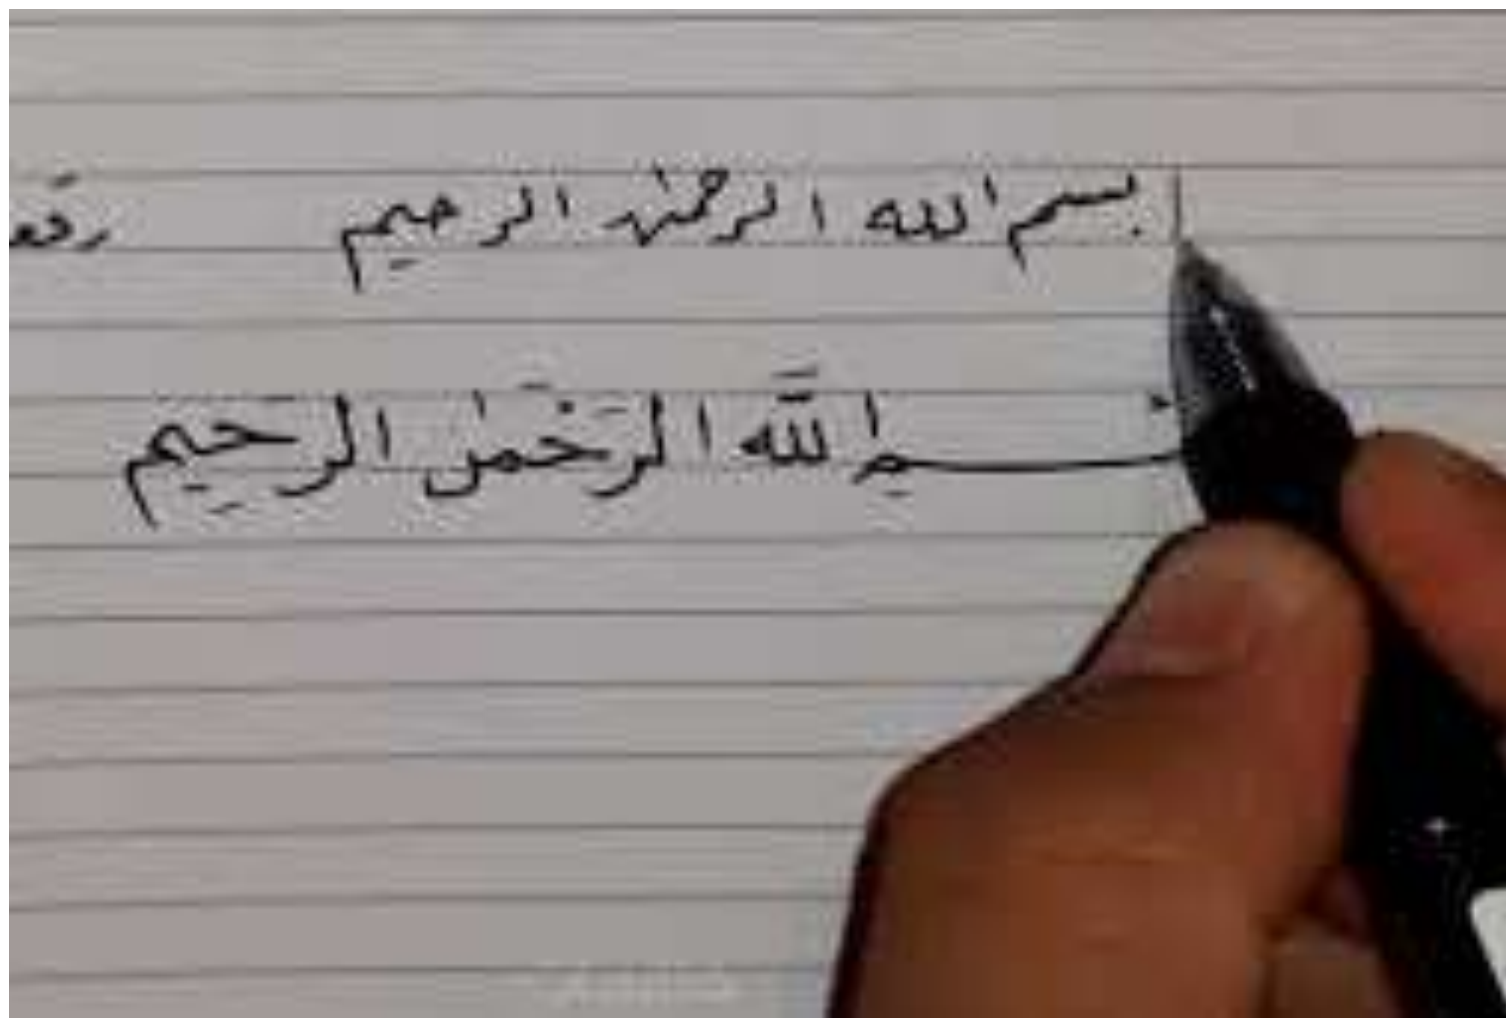 بسم الله الرحمن الرحيم رقعة
بسم الله الرَّحْمٰن الرَّحِيم